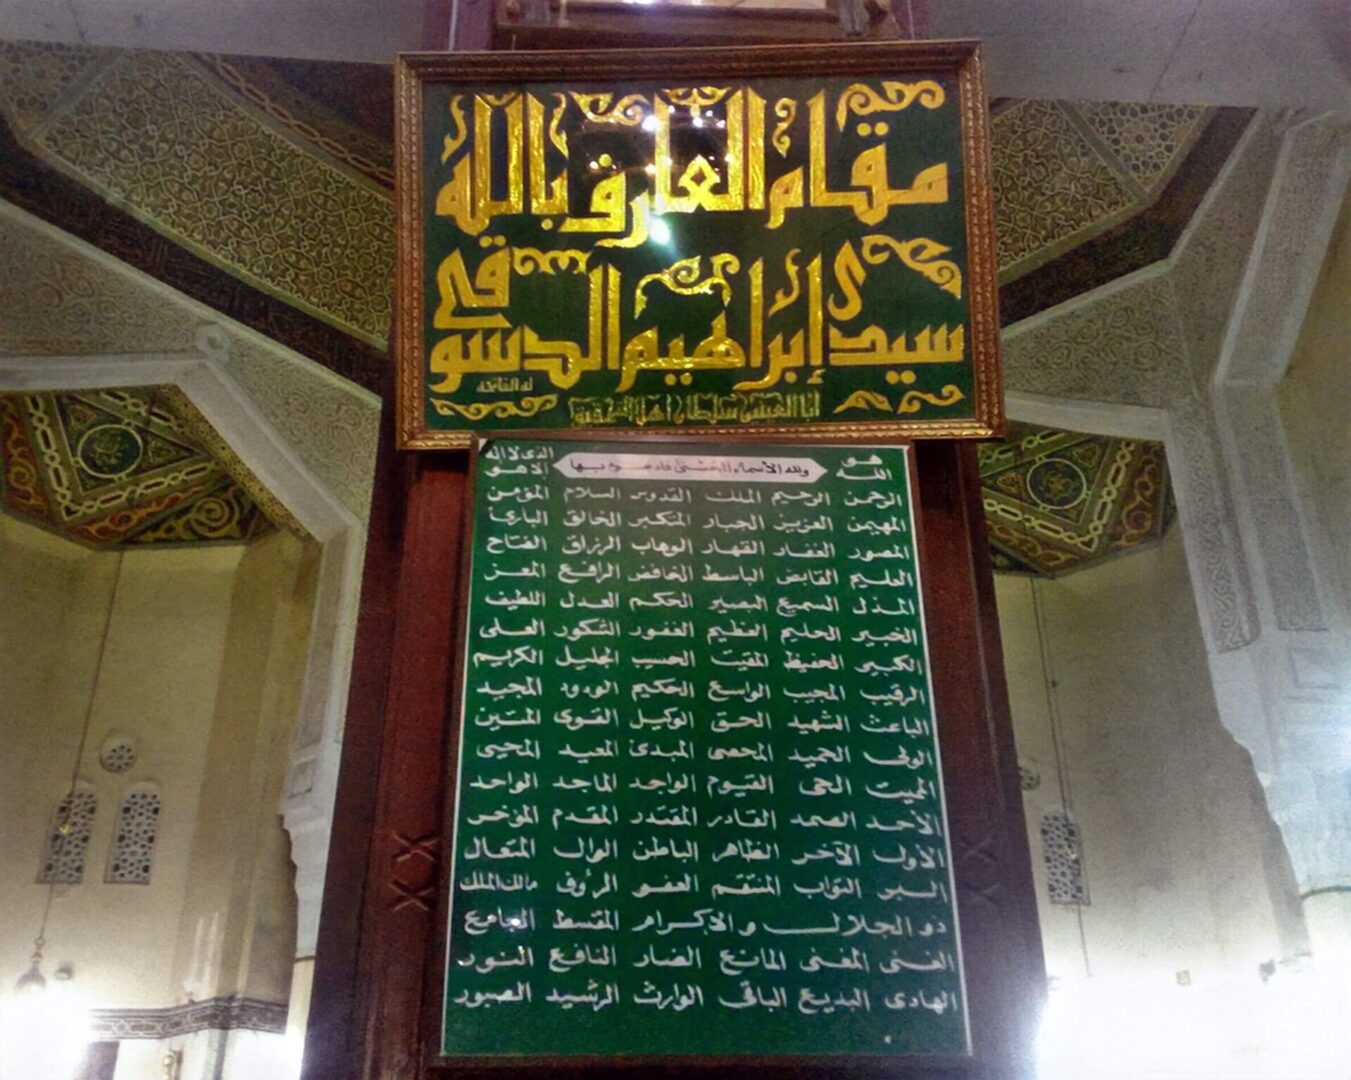 مقام العارف بالله
سيدى إبراهيم الدسوقى
له الفاتحه
أبا العينين سلطان أهل التحقيق
هو الله
ولله الأسماء الحسنى فادعوه بها
الذى لا إله الا هو
الرحمن الرحيم الملك القدوس السلام المؤمن
المهيمن العزيز الجبار المتكبر الخالق البارئ
المصور الغفار القهار الوهاب الرزاق الفتاح
العليم القابض الباسط الخافض الرافع المعز
المذل السميع البصير الحكم العدل اللطيف
الخبير الحليم العظيم الغفور الشكور العلى
الكبير الحفيظ المقيت الحسيب الجليل الكريم
الرقيب المجيب الواسع الحكيم الودود المجيد
الباعث الشهيد الحق الوكيل القوى المتين
الولى الحميد المحصى المبدئ المعيد المحيى
المميت الحى القيوم الواجد الماجد الواحد
الأحد الصمد القادر المقتدر المقدم المؤخر
الأول الآخر الظاهر الباطن الوال المتعال
البر التواب المنتقم العفو الرؤف مالك الملك
ذو الجلال والإكرام المقسط الجامع
الغنى المغنى المانع الضار النافع النور
الهادى البديع الباقى الوارث الرشيد الصبور